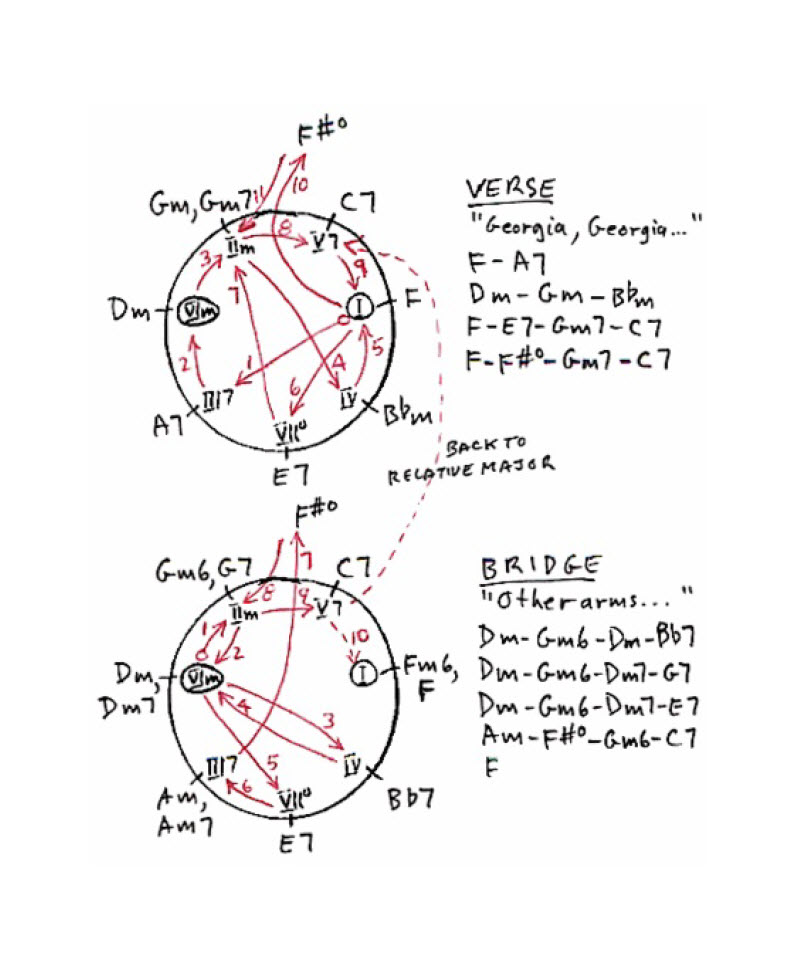 F#°
Gm, Gm7
C7
11
10
IIm
8
V7
3
9
7
Dm
VIm
I
F
2
1
4
5
6
III7
IV
A7
Bbm
VII°
E7
VERSE
"Georgia, Georgia..."
F-A7
Dm-Gm-Bbm
F-E7-Gm7-C7
F-F#°-Gm7-C7
BACK TO
RELATIVE MAJOR
F#°
7
Gm6, G7
C7
8
9
IIm
V7
1
2
10
Dm,
Dm7
VIm
I
Fm6,
F
4
3
5
III7
IV
6
Am,
Am7
VII°
Bb7
E7
BRIDGE
"Other arms..."
Dm-Gm6-Dm-Bb7
Dm-Gm6-Dm7-G7
Dm-Gm6-Dm7-E7
Am-F#°-Gm6-C7
F